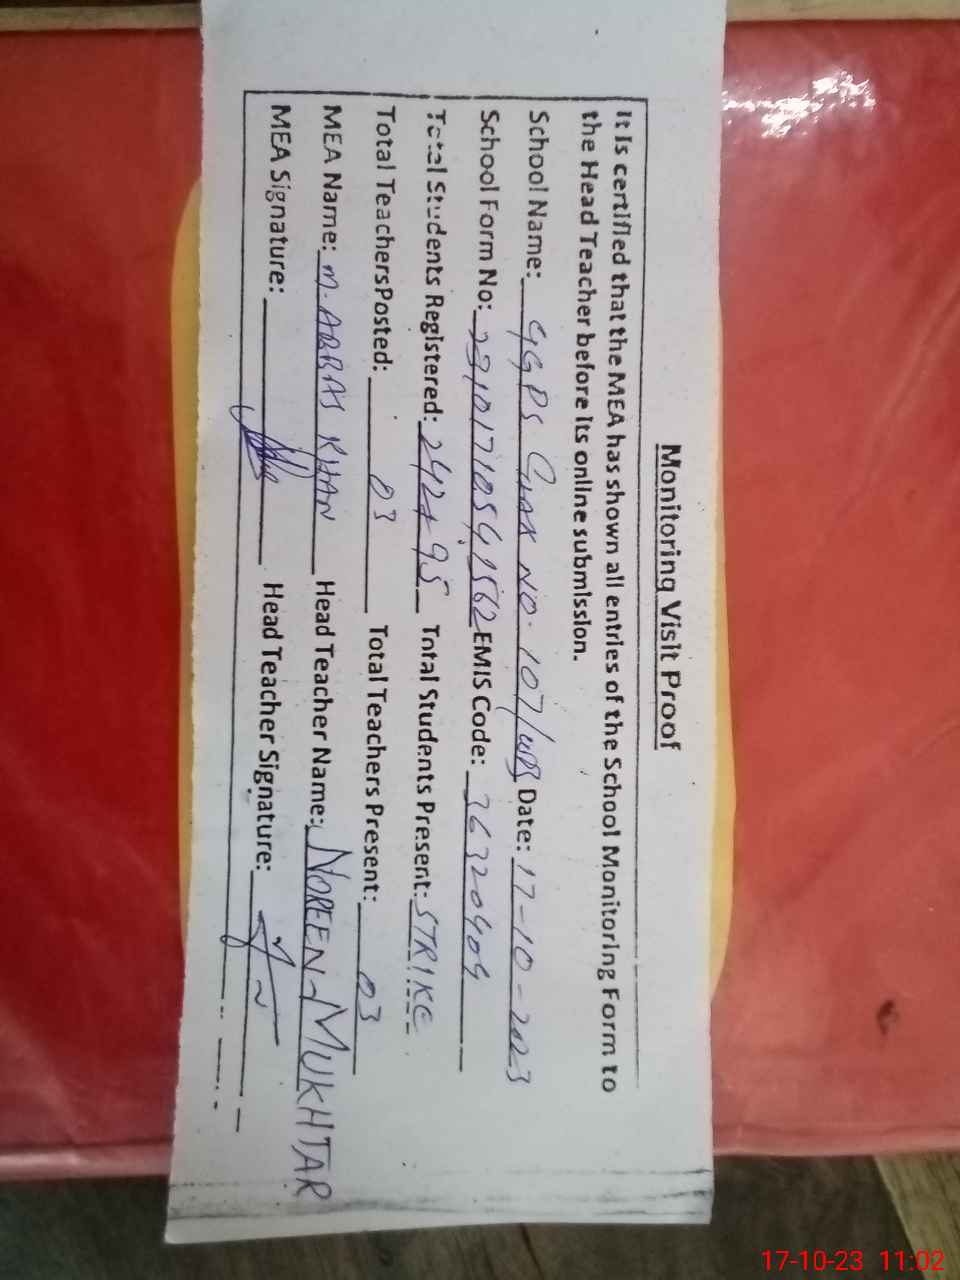 Monitoring Visit Proof
It is certified that the MEA has shown all entries of the School Monitoring Form to
the Head Teacher before its online submission.
School Name: GGPS Chak No. 107/WB Date: 17-10-2023
School Form No: EMIS Code:
Total Students Registered: 242+95 Total Students Present: STRIKE
Total TeachersPosted: 03 Total Teachers Present: 03
MEA Name: M. ABBAS KHAN Head Teacher Name: NOREEN MUKHTAR
MEA Signature: Head Teacher Signature:
17-10-23 11:02